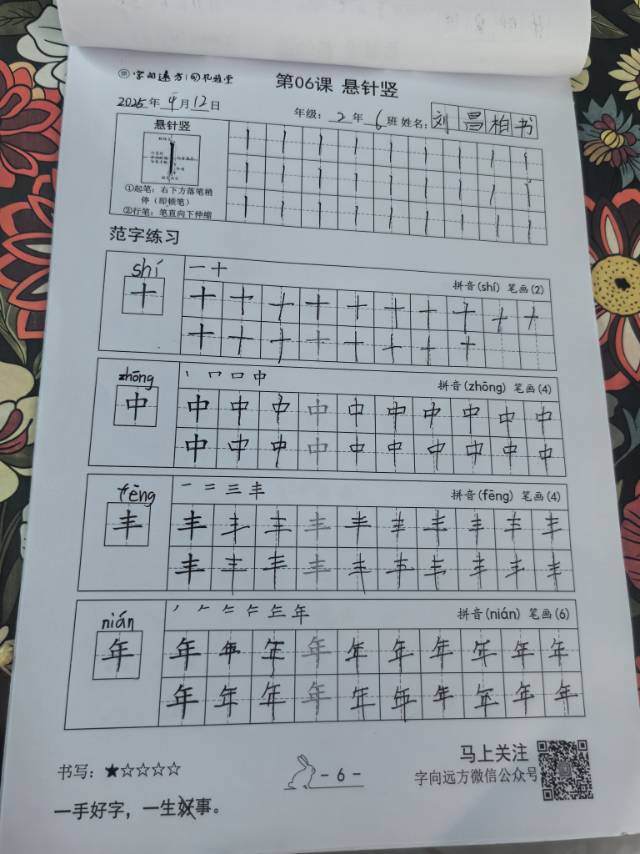 字向远方
第06课 悬针竖
2025年 4月12日
年级：2年6班 姓名：刘昌柏书
悬针竖
①起笔：右下方落笔稍
停（即顿笔）
②行笔：笔直向下伸缩
范字练习
shí
一十
拼音(shí) 笔画(2)
十
十十十十十十十十十十
十十十十十十十十
zhōng
丨 冂 口 中
拼音(zhōng) 笔画(4)
中
中中中中中中中中中中
中中中中中中中中中中
fēng
一 二 三 丰
拼音(fēng) 笔画(4)
丰
丰丰丰丰丰丰丰丰丰丰
丰丰丰丰丰丰丰丰丰丰
nián
年
拼音(nián) 笔画(6)
年
年年年年年年年年年年
年年年年年年年年年年
书写：★☆☆☆☆
- 6 -
马上关注
字向远方微信公众号
一手好字，一生好事。